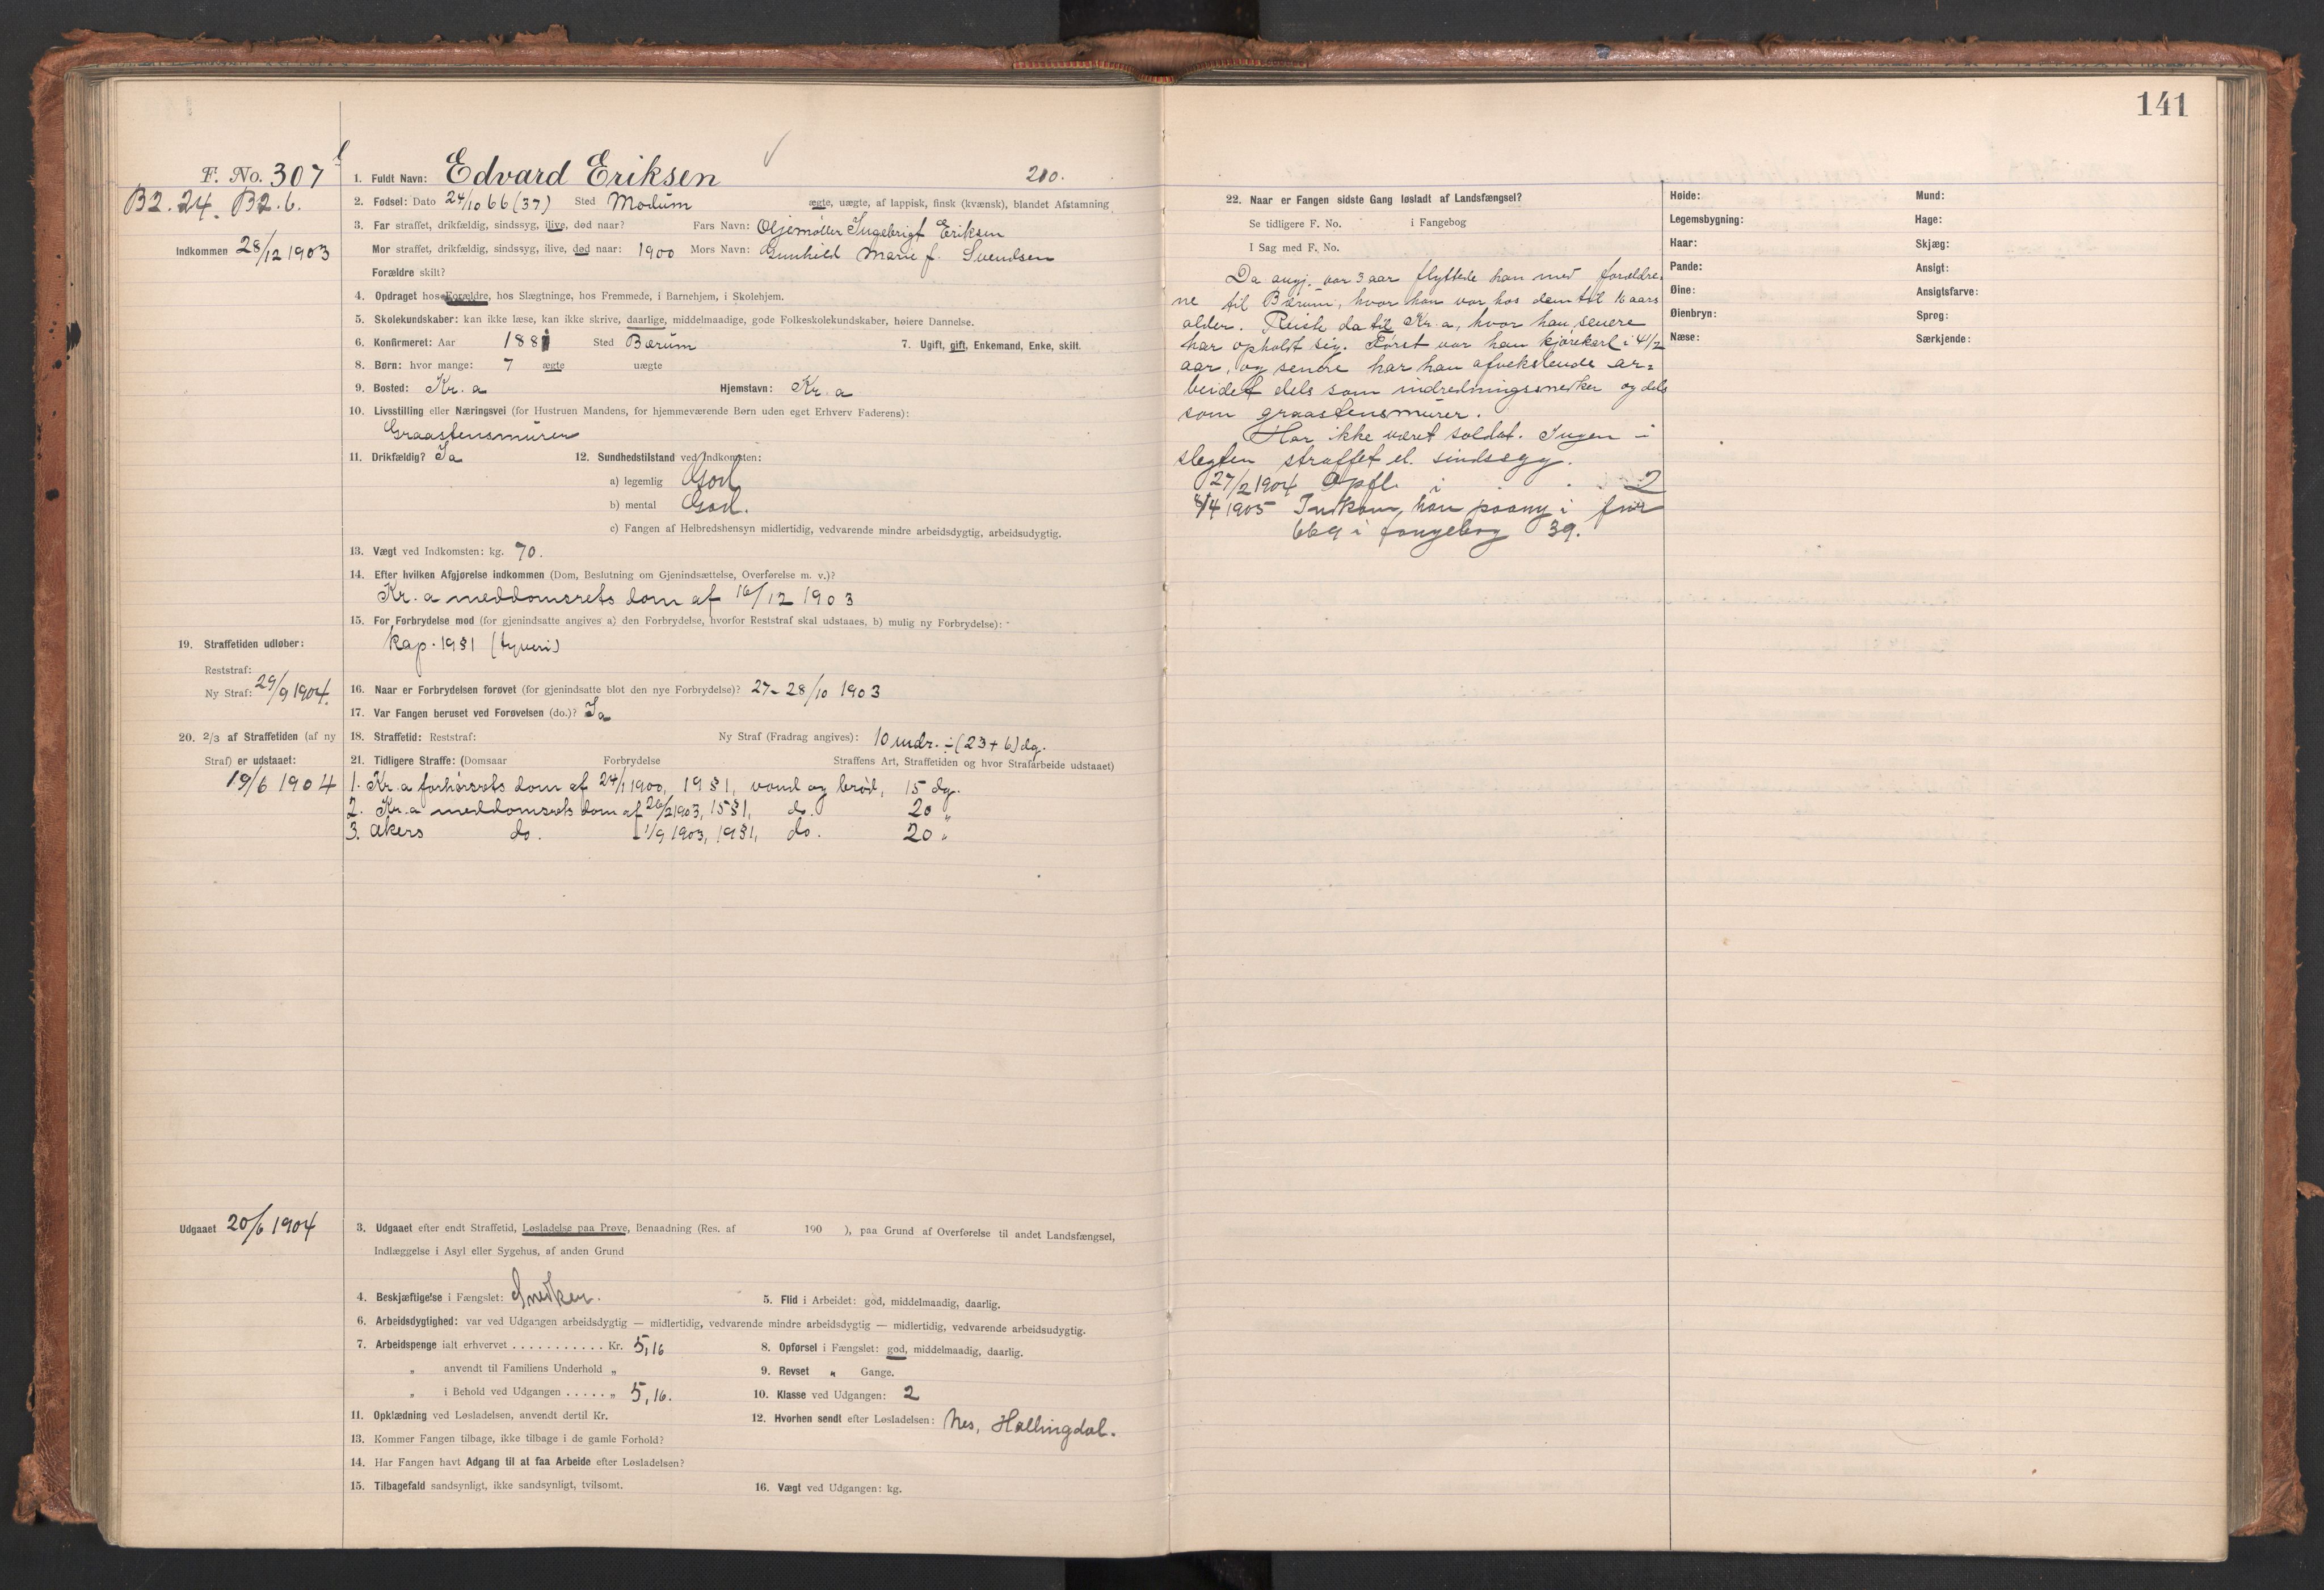 141
F. No. 307
1. Fuldt Navn: Edvard Eriksen 210.
B2. 24. B2. 6.
2. Fødsel: Dato 24/10 66 (37) Sted Modum ægte, uægte, af lappisk, finsk (kvænsk), blandet Afstamning
Indkommen 28/12 1903
3. Far straffet, drikfældig, sindssyg, ilive, død naar? Fars Navn: Oljemøller Ingebrigt Eriksen
Mor straffet, drikfældig, sindssyg, ilive, død naar: 1900 Mors Navn: Gunhild Marie f. Svendsen
Forældre skilt?
4. Opdraget hos Forældre, hos Slægtninge, hos Fremmede, i Barnehjem, i Skolehjem.
5. Skolekundskaber: kan ikke læse, kan ikke skrive, daarlige, middelmaadige, gode Folkeskolekundskaber, høiere Dannelse.
6. Konfirmeret: Aar 1881 Sted Bærum 7. Ugift, gift, Enkemand, Enke, skilt.
8. Børn: hvor mange: 7 ægte uægte
9. Bosted: Kr.a Hjemstavn: Kr.a
10. Livsstilling eller Næringsvei (for Hustruen Mandens, for hjemmeværende Børn uden eget Erhverv Faderens):
Graastensmurer
11. Drikfældig? Ja 12. Sundhedstilstand ved Indkomsten:
a) legemlig God
b) mental God.
c) Fangen af Helbredshensyn midlertidig, vedvarende mindre arbeidsdygtig, arbeidsudygtig.
13. Vægt ved Indkomsten: kg. 70.
14. Efter hvilken Afgjørelse indkommen (Dom, Beslutning om Gjenindsættelse, Overførelse m. v.)?
Kr.a meddomsrets dom af 16/12 1903
15. For Forbrydelse mod (for gjenindsatte angives a) den Forbrydelse, hvorfor Reststraf skal udstaaes, b) mulig ny Forbrydelse):
Kap. 19 § 1 (tyveri)
19. Straffetiden udløber:
Reststraf:
Ny Straf: 29/9 1904.
16. Naar er Forbrydelsen forøvet (for gjenindsatte blot den nye Forbrydelse)? 27-28/10 1903
17. Var Fangen beruset ved Forøvelsen (do.)? Ja
20. 2/3 af Straffetiden (af ny Straf) er udstaaet:
19/6 1904
18. Straffetid: Reststraf: Ny Straf (Fradrag angives): 10 mdr. ÷ (23 + 6) dg.
21. Tidligere Straffe: (Domsaar Forbrydelse Straffens Art, Straffetiden og hvor Strafarbeide udstaaet)
1. Kr.a forhørsrets dom af 24/1 1900, 19 § 1, vand og brød, 15 dg.
2. Kr.a meddomsrets dom af 26/2 1903, 15 § 1, do. 20 "
3. Akers do. 1/9 1903, 19 § 1, do. 20 "
Udgaaet 20/6 1904
3. Udgaaet efter endt Straffetid, Løsladelse paa Prøve, Benaadning (Res. af 190 ), paa Grund af Overførelse til andet Landsfængsel,
Indlæggelse i Asyl eller Sygehus, af anden Grund
4. Beskjæftigelse i Fængslet: Snedker. 5. Flid i Arbeidet: god, middelmaadig, daarlig.
6. Arbeidsdyglighed: var ved Udgangen arbeidsdygtig — midlertidig, vedvarende mindre arbeidsdygtig — midlertidig, vedvarende arbeidsudygtig.
7. Arbeidspenge ialt erhvervet . . . . . . . . . . . Kr. 5,16 8. Opførsel i Fængslet: god, middelmaadig, daarlig.
" anvendt til Familiens Underhold " 9. Revset " Gange.
" i Behold ved Udgangen . . . . . " 5,16. 10. Klasse ved Udgangen: 2
11. Opklædning ved Løsladelsen, anvendt dertil Kr. 12. Hvorhen sendt efter Løsladelsen: Nes, Hallingdal.
13. Kommer Fangen tilbage, ikke tilbage i de gamle Forhold?
14. Har Fangen havt Adgang til at faa Arbeide efter Løsladelsen?
15. Tilbagefald sandsynligt, ikke sandsynligt, tvilsomt. 16. Vægt ved Udgangen: kg.
22. Naar er Fangen sidste Gang løsladt af Landsfængsel?
Se tidligere F. No. i Fangebog
I Sag med F. No.
Da angj. var 3 aar flyttede han med forældre-
ne til Bærum, hvor han var hos dem til 16 aars
alder. Reiste da til Kr.a, hvor han senere
har opholdt sig. Først var han kjørekarl i 4 1/2
aar, og senere har han afvekslende ar-
beidet dels som indredningssnedker og dels
som graastensmurer.
Har ikke været soldat. Ingen i
slegten straffet el. sindssyg.
27/2 1904 Opfl. i 2
8/4 1905 Indkom han paany i fnr
669 i fangebog 39.
Høide: Mund:
Legemsbygning: Hage:
Haar: Skjæg:
Pande: Ansigt:
Øine: Ansigtsfarve:
Øienbryn: Sprog:
Næse: Særkjende: